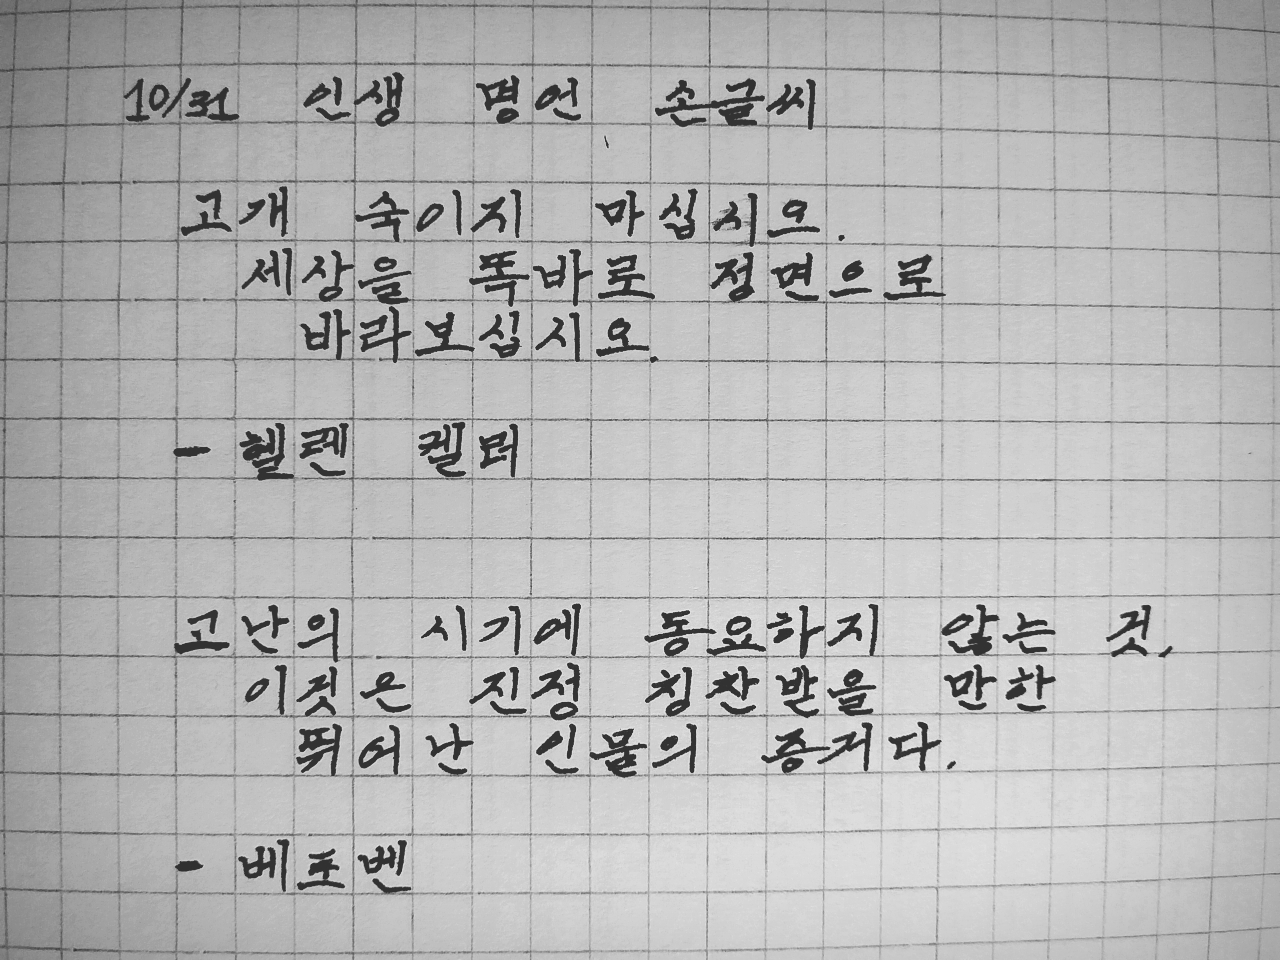 10/31 인생 명언 손글씨
고개 숙이지 마십시오.
세상을 똑바로 정면으로
바라보십시오.
- 헬렌 켈러
고난의 시기에 동요하지 않는 것,
이것은 진정 칭찬받을 만한
뛰어난 인물의 증거다.
- 베토벤